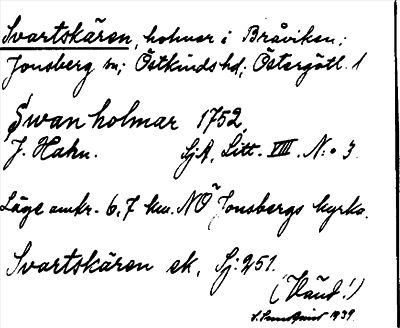 Svartskären, holmar i Bråviken;
Jonsberg sn; Östkinds hd; Östergötl. 1
Swan holmar 1752,
J. Hahn. SjA, Litt. VIII. N:o 3
Läge omkr. 6,7 km. NO Jonsbergs kyrka.
Svartskären ek. Sj: 251.
(Vänd!)
1939